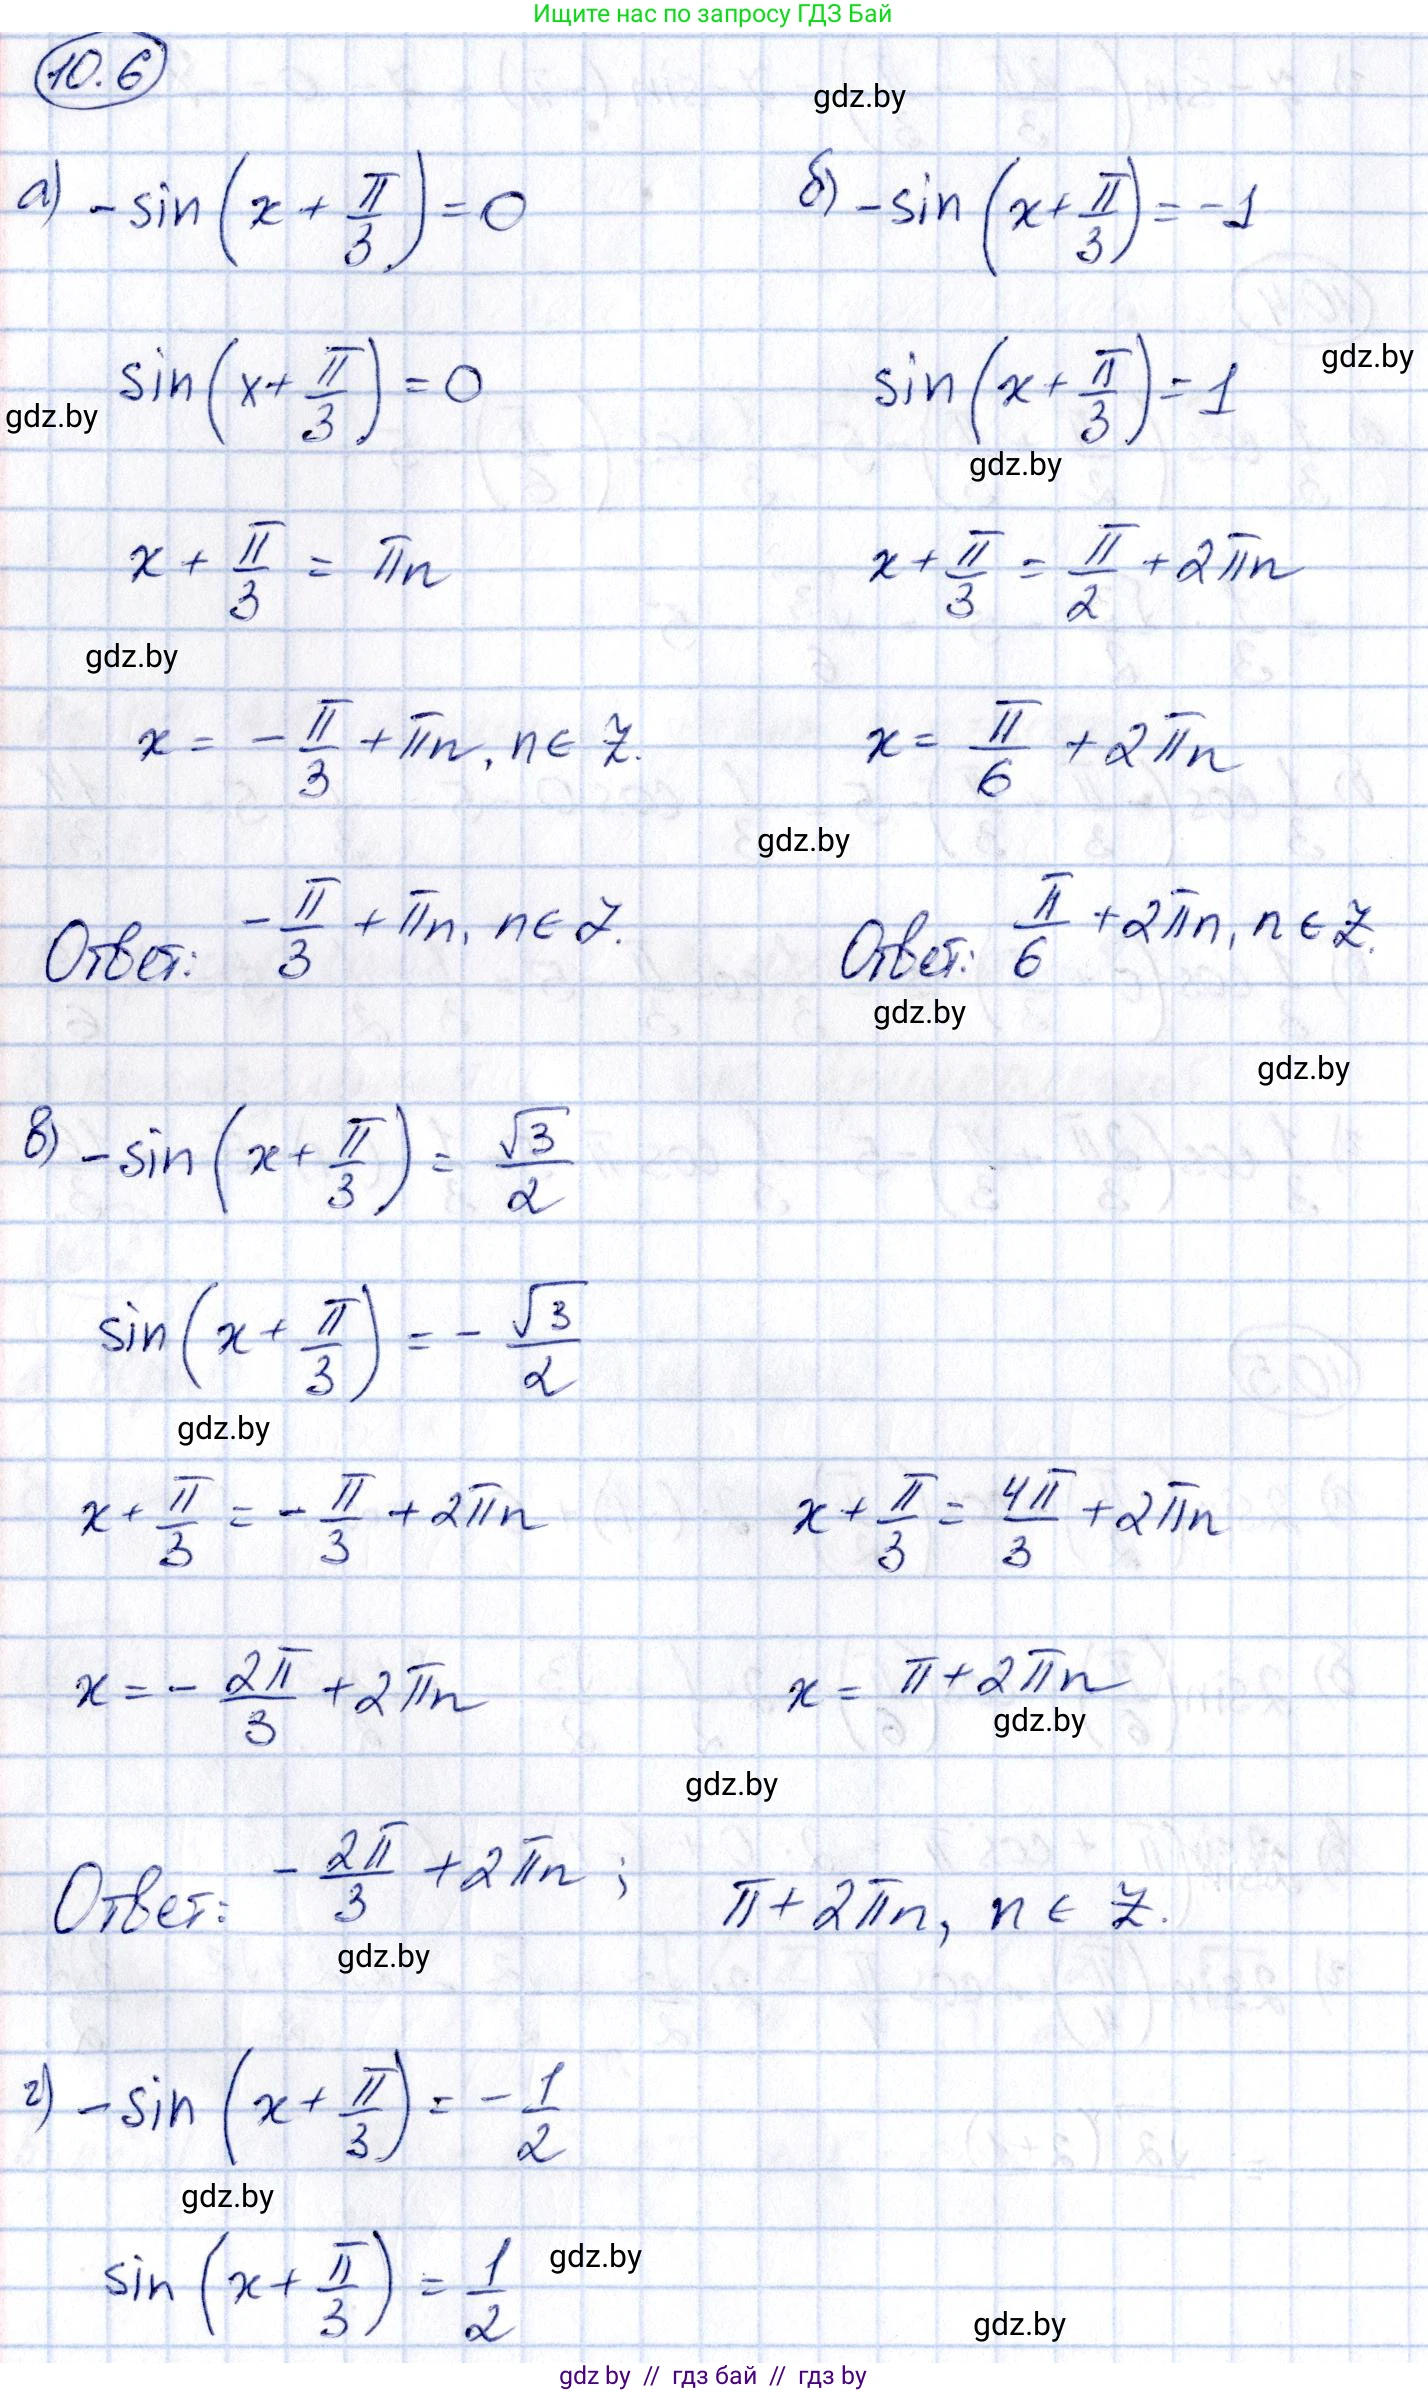 Ищите нас по запросу ГДЗ Бай
10.6
gdz.by
а) -sin(x + π/3) = 0
б) -sin(x + π/3) = -1
sin(x + π/3) = 0
sin(x + π/3) = 1
gdz.by
gdz.by
gdz.by
x + π/3 = πn
x + π/3 = π/2 + 2πn
gdz.by
x = -π/3 + πn, n ∈ Z.
x = π/6 + 2πn
gdz.by
Ответ: -π/3 + πn, n ∈ Z.
Ответ: π/6 + 2πn, n ∈ Z.
gdz.by
gdz.by
в) -sin(x + π/3) = √3/2
sin(x + π/3) = -√3/2
gdz.by
x + π/3 = -π/3 + 2πn
x + π/3 = 4π/3 + 2πn
x = -2π/3 + 2πn
x = π + 2πn
gdz.by
gdz.by
Ответ: -2π/3 + 2πn; π + 2πn, n ∈ Z.
gdz.by
г) -sin(x + π/3) = -1/2
gdz.by
sin(x + π/3) = 1/2
gdz.by
gdz.by
gdz by // гдз бай // гдз by